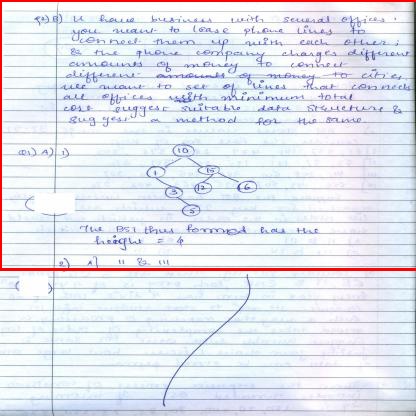 Q2) B) U have business with several offices.
you want to lease phone lines to
connect them up with each other;
& the phone company charges different
amounts of money to connect
different cities.
we want to set of lines that connects
all offices with minimum total
cost suggest suitable data structure &
suggest a method for the same
Q1) A) 1)
10
1 15
3 12 6
5
∴ The BST thus formed has the
height = 4
2) A] ii & iii